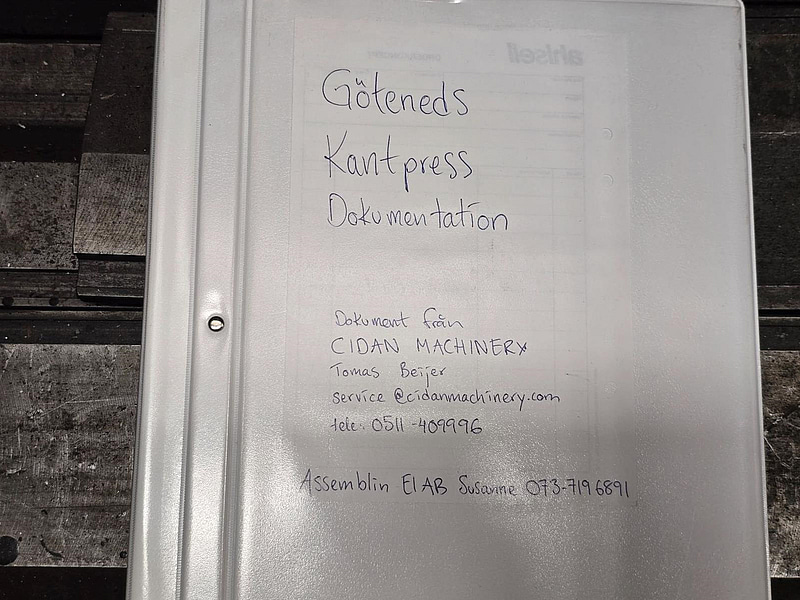 ahlsell
Göteneds
Kantpress
Dokumentation
Dokument från
CIDAN MACHINERY
Tomas Beijer
service @cidanmachinery.com
tele: 0511-409996
Assemblin El AB Susanne 073-719 6891